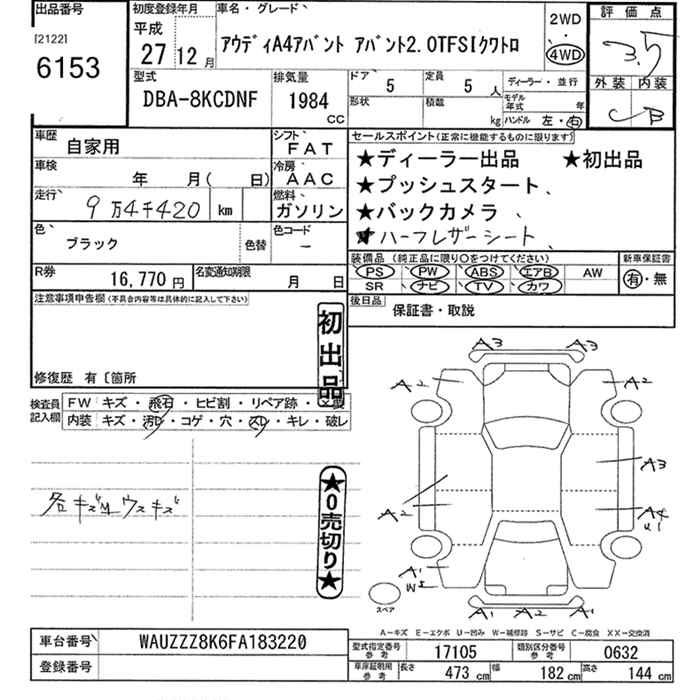 出品番号
[2122]
6153
初度登録年月
平成
27 12月
車名・グレード
アウディA4アバント アバント2.0TFSIクワトロ
2WD
・
4WD
評価点
3.5
外装 内装
C B
型式
DBA-8KCDNF
排気量
1984
CC
ドア
5
定員
5 人
形状
積載
kg
ディーラー・並行
モデル年式 年
ハンドル 左・右
車歴
自家用
シフト
FAT
車検
年 月( 日)
冷房
AAC
走行
9万4千420 km
燃料
ガソリン
色
ブラック
色替
色コード
-
R券
16,770円
名変通知期限
月 日
セールスポイント(正常に機能するものに限ります)
★ディーラー出品 ★初出品
★プッシュスタート、
★バックカメラ、
★ハーフレザーシート
装備品(純正品に限り○をつけてください)
PS PW ABS エアB AW
SR ナビ TV カワ
新車保証書
有・無
後日品
保証書・取説
注意事項申告欄(不具合内容等は具体的に記入して下さい)
初出品
修復歴 有〔箇所
検査員記入欄
FW キズ・飛石・ヒビ割・リペア跡・X要
内装 キズ・汚レ・コゲ・穴・スレ・キレ・破レ
各キズ ウスキズ
★0売切り★
A3 A3
A2 A2
A3
A2 A4
U1
A1
W3
A1 A2 A1
スペア
A-キズ E-エクボ U-凹み W-補修跡 S-サビ C-腐食 XX-交換済
車台番号
WAUZZZ8K6FA183220
登録番号
型式指定番号 参考
17105
類別区分番号 参考
0632
車庫証明用 参考
長さ 473 cm 幅 182 cm 高さ 144 cm